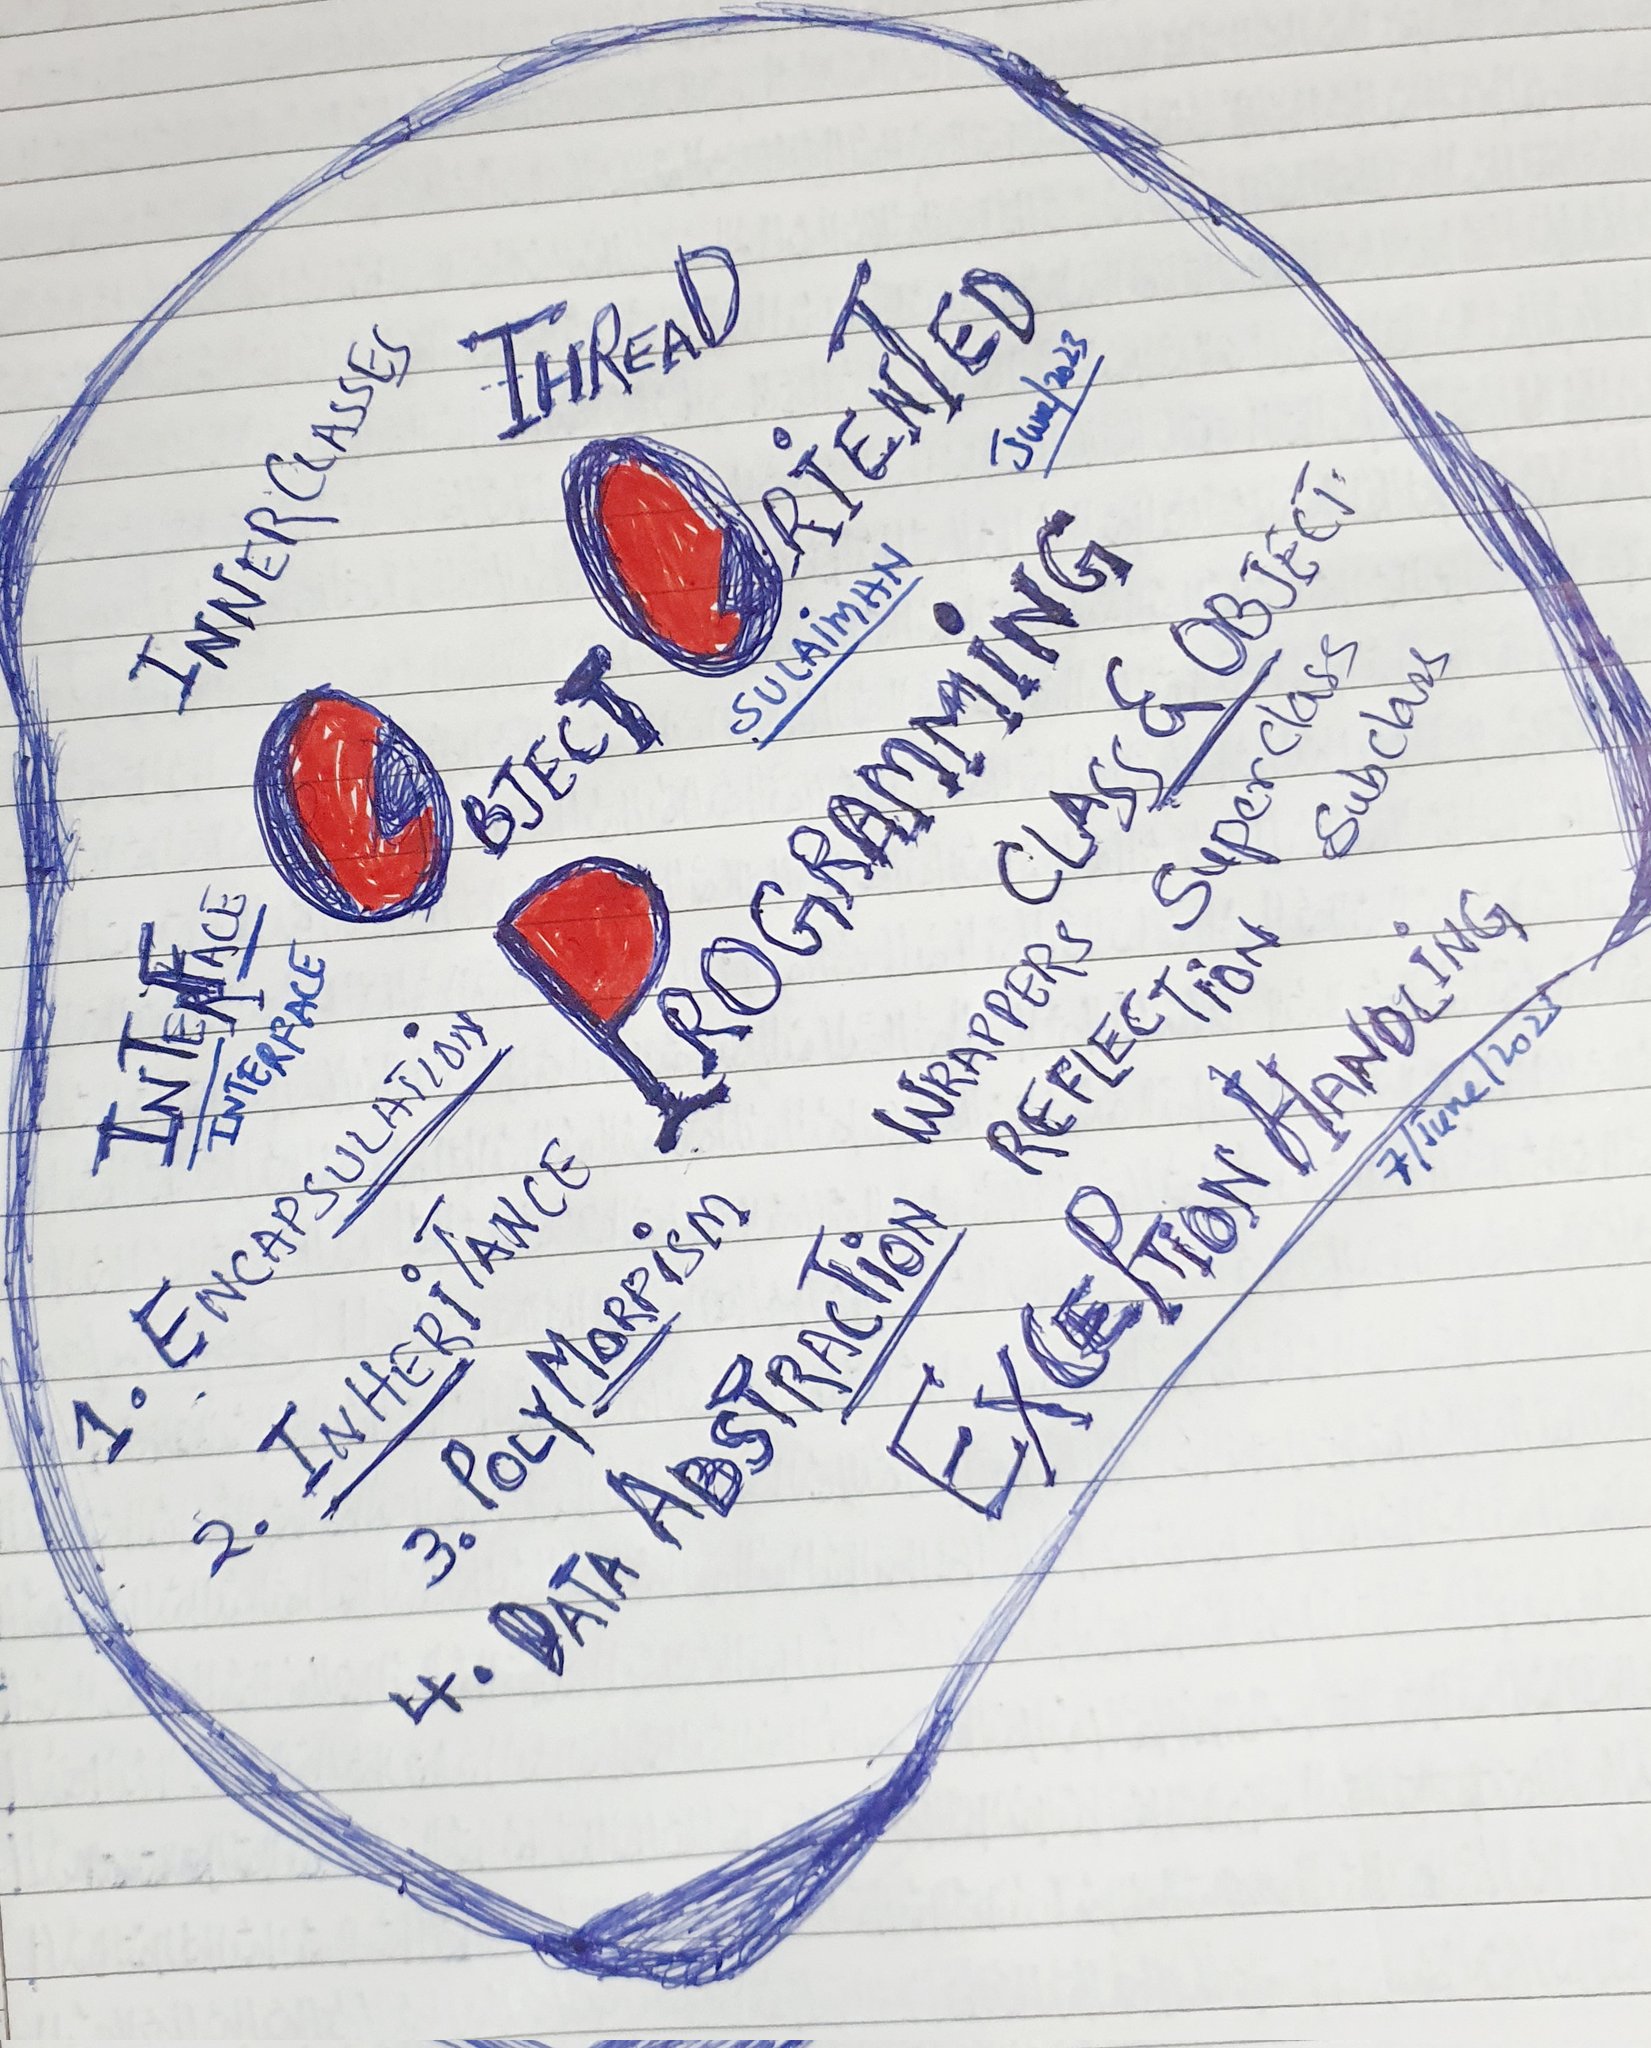 INNERCLASSES
THREAD
OBJECT
ORIENTED
June/2023
SULAIMAN
PROGRAMMING
INTERFACE
INTERFACE
CLASS & OBJECT
Superclass
Subclass
WRAPPERS
REFLECTION
1. ENCAPSULATION
2. INHERITANCE
3. POLYMORPISM
4. DATA ABSTRACTION
EXCEPTION HANDLING
7/June/2023